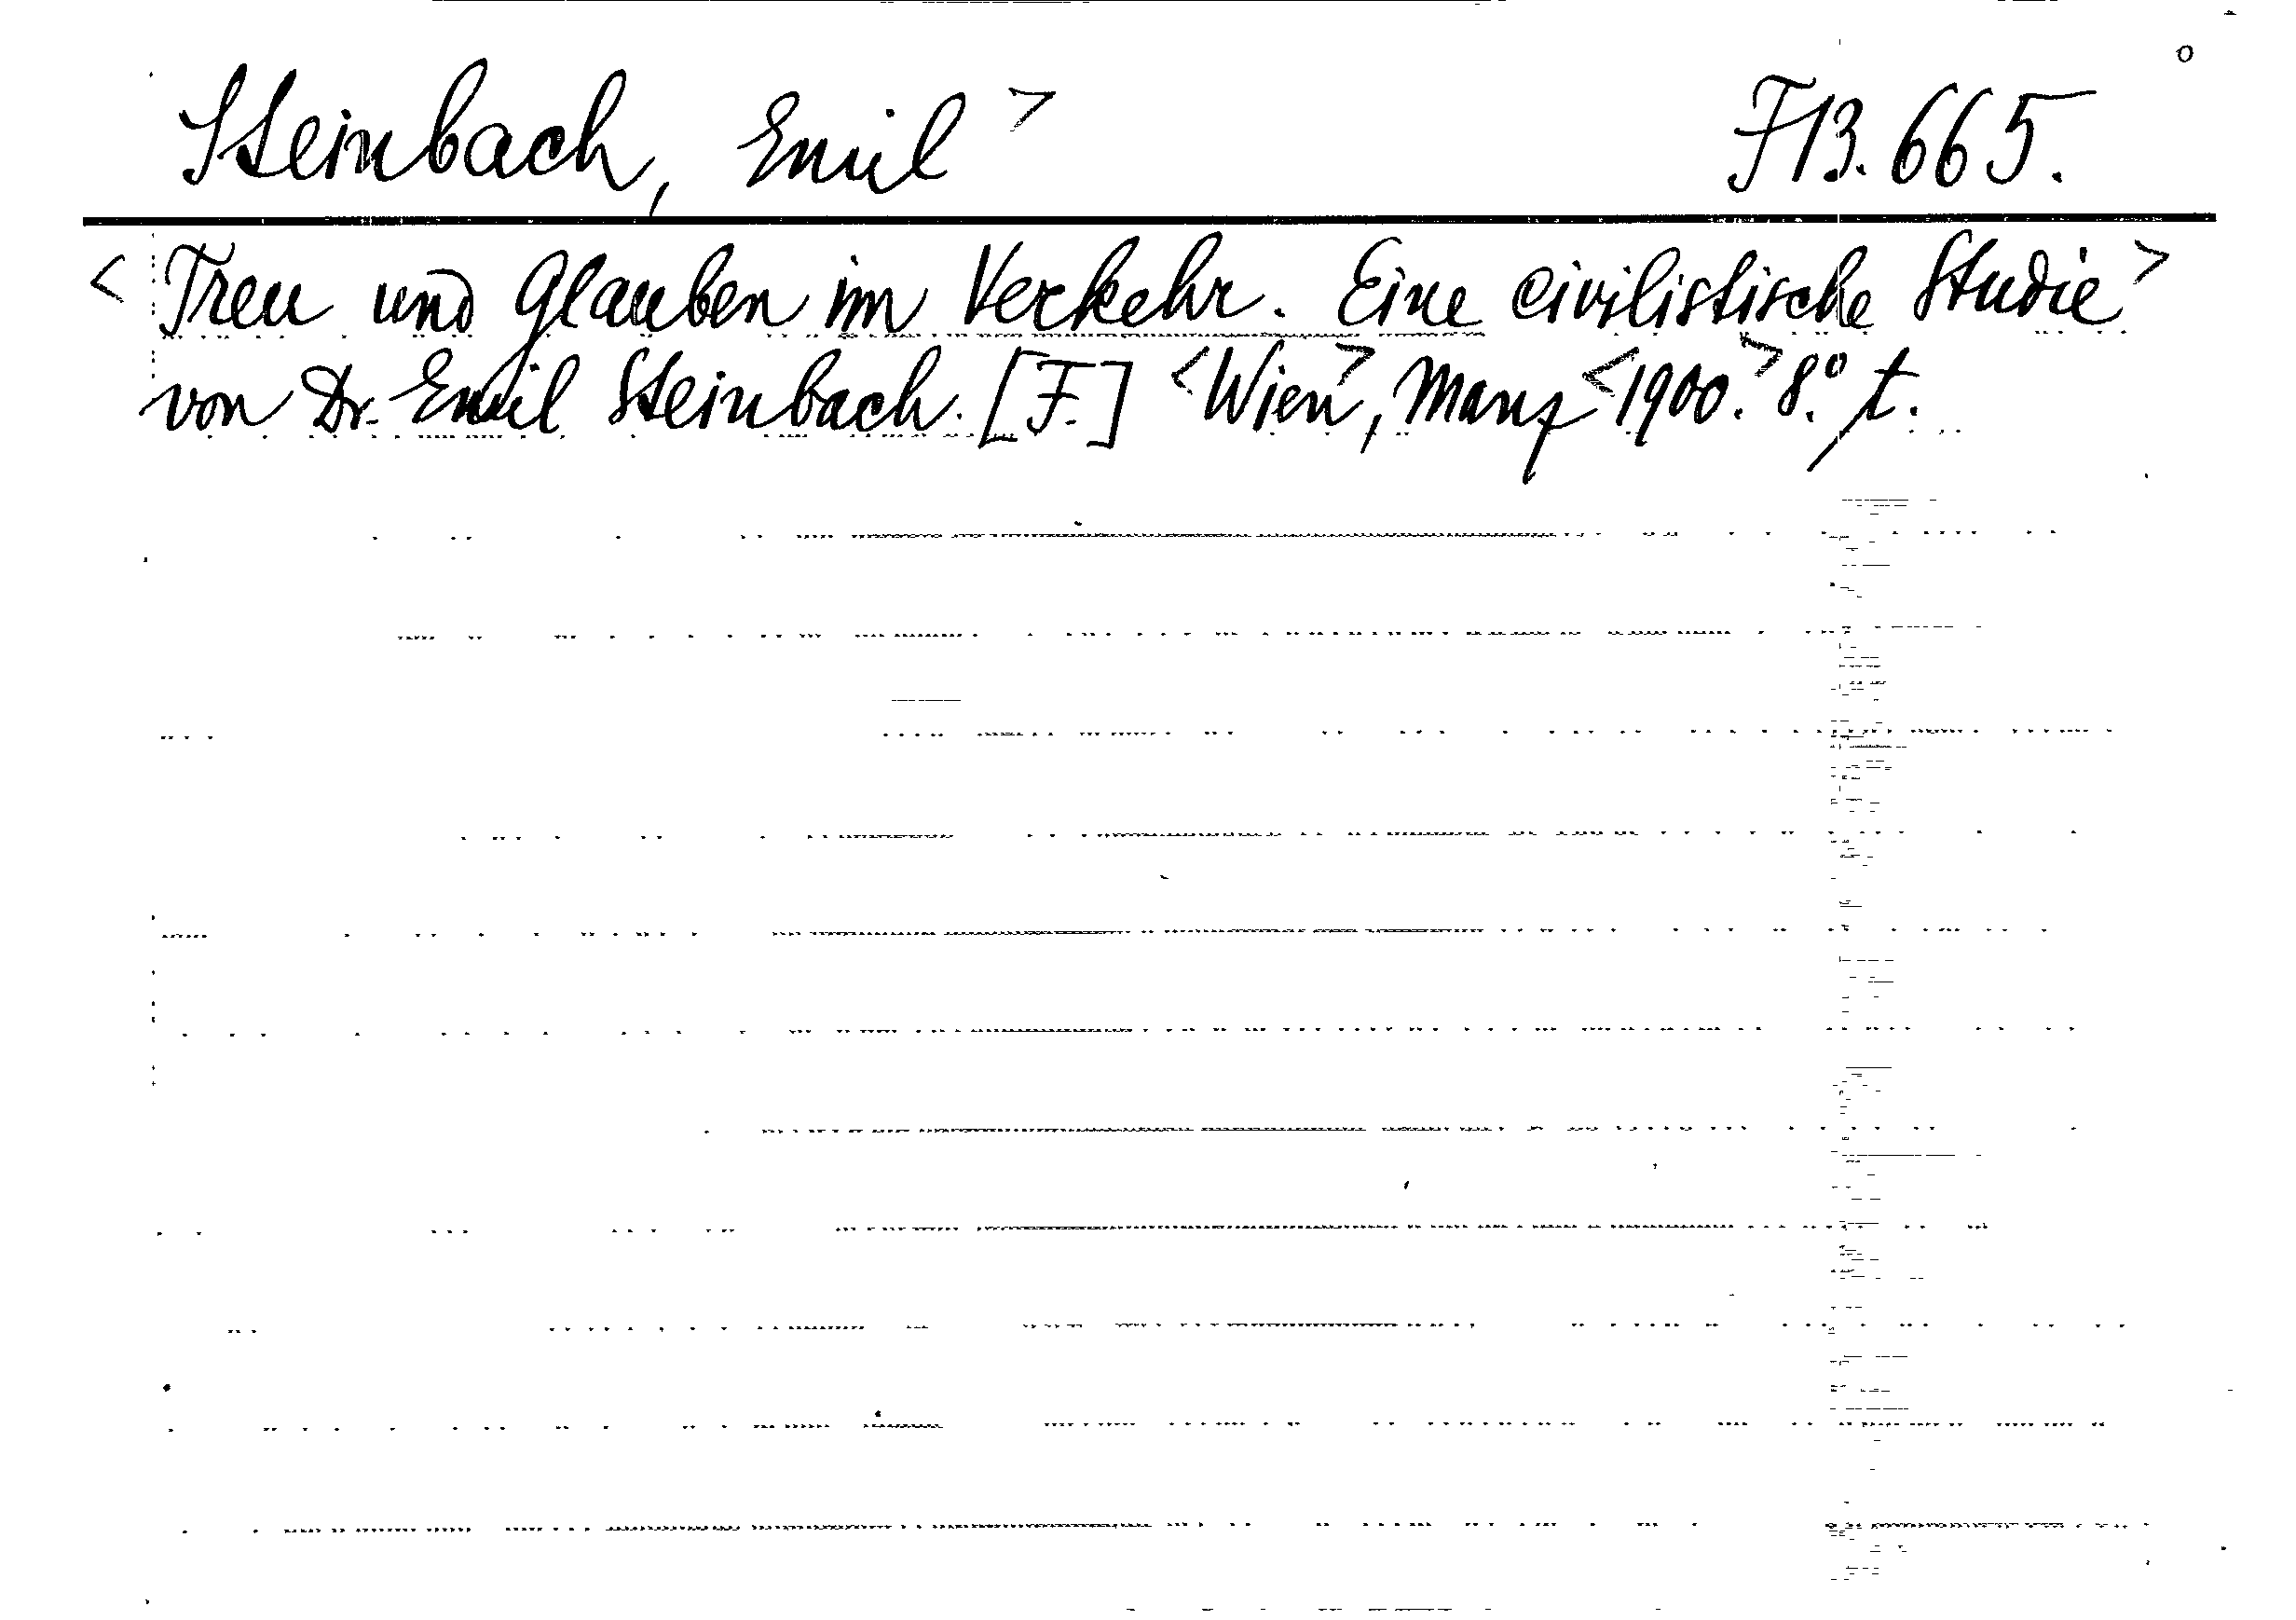 Steinbach, Emil> F13.665.
<Treu und Glauben im Verkehr. Eine civilistische Studie>
von Dr. Emil Steinbach. [F.] <Wien>, Manz <1900.> 8.° t.